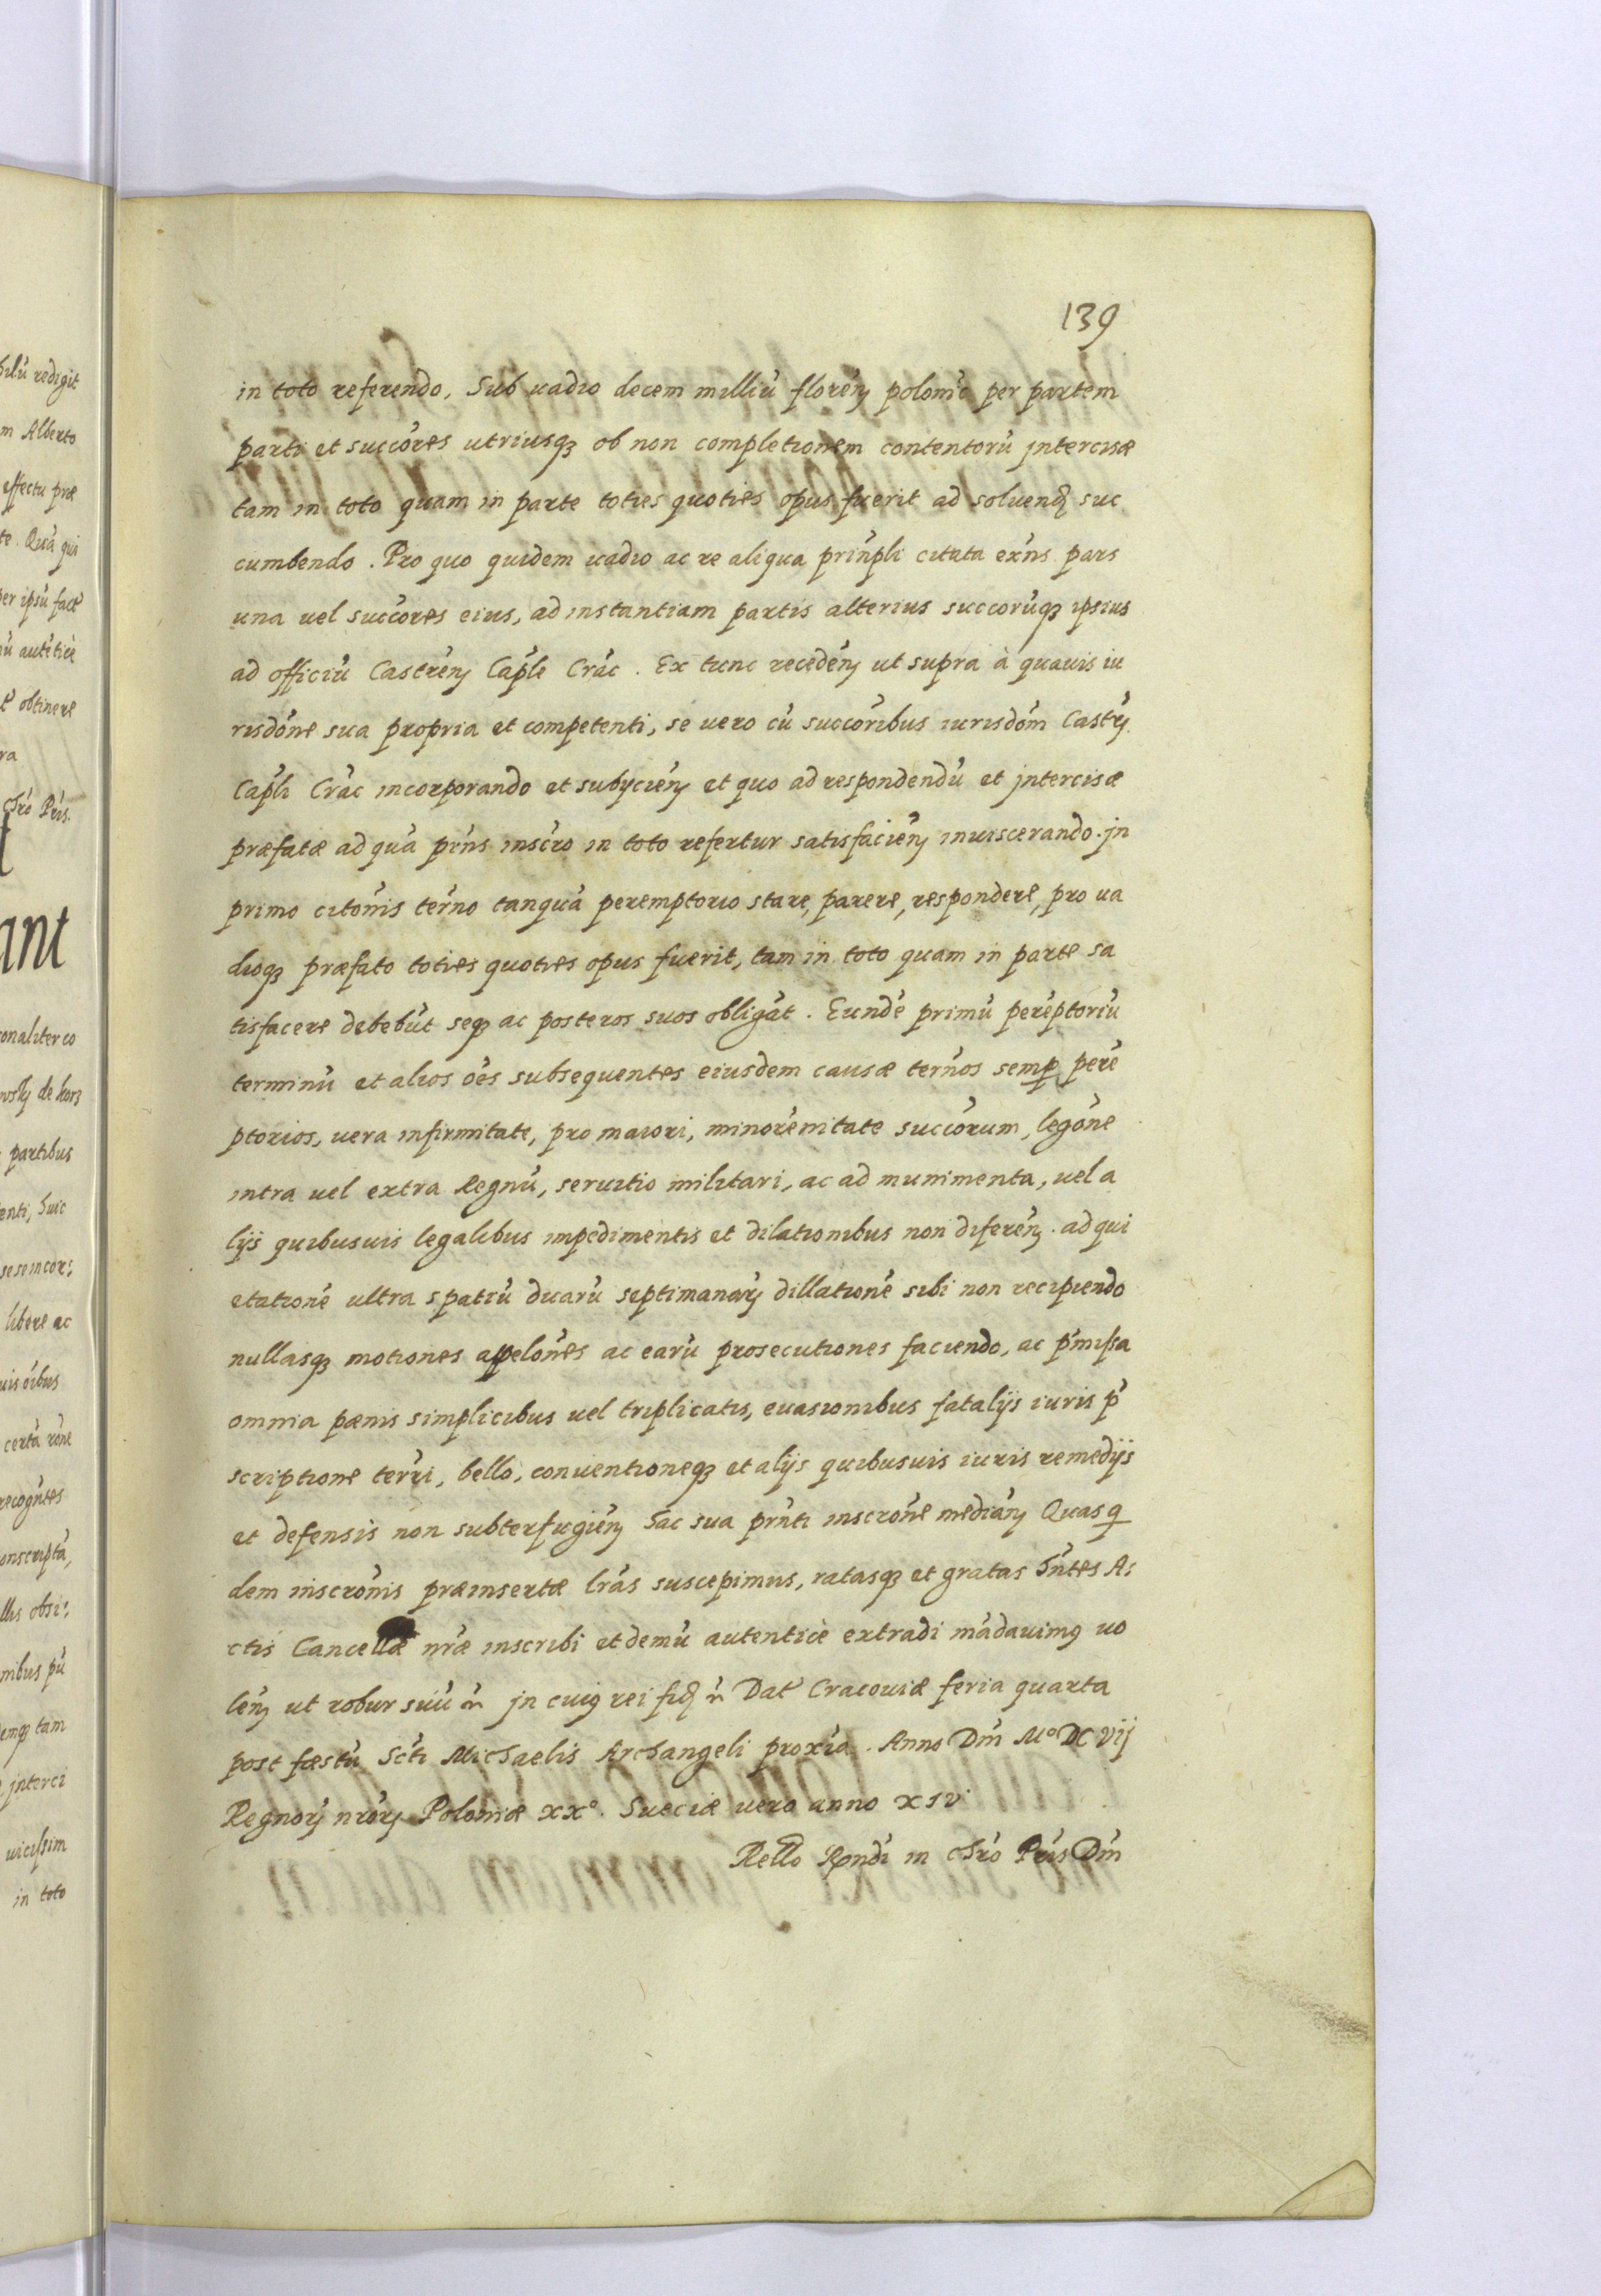 139
in toto referendo, Sub uadio decem milliu̇ florėn polonic̓ per partem
parti et succo̓res utriusqʒ ob non completionem contentoru̓ jntercisæ
tam in toto quam in parte toties quoties opus fuerit ad soluend suc
cumbendo. Pro quo quidem uadio ac re aliqua prin̓pli citata exn̓s pars
una uel succo̓res eius, ad instantiam partis alterius succoru̓qʒ ipsius
ad officiu̓ Castren̓ Cap̓le Cra̓c. Ex tunc receden̓ ut supra à quauis iu
risdo̓ne sua propria et competenti, se uero cu̓ succo̓ribus iurisdo̓m Castr̓
Cap̓li Cra̓c incorporando et subijcien̓ et quo ad respondendu̓ et jntercisæ
præfatæ ad qua̓ prn̓s inscr̓o in toto refertur satisfacien̓ inuiscerando. jn
primo cito̓nis ter̓no tanqua̓ peremptorio stare, parere, respondere, pro ua
dioqʒ præfato toties quoties opus fuerit, tam in toto quam in parte sa
tisfacere debebu̓t seqʒ ac posteros suos obliga̓t. Eunde̓ primu̓ pere̓ptoriu̓
terminu̓ et alios o̓es subsequentes eiusdem causæ ter̓nos semp pere̓
ptorios, uera infirmitate, pro maiori, minore̓nitate succo̓rum, lego̓ne
intra uel extra Regnu̓, seruitio militari, ac ad munimenta, uel a
lijs quibusuis legalibus impedimentis et dilationibus non diferen̓. ad qui
etatione̓ ultra spatiu̓ duaru̓ septimanar̓ dillatione̓ sibi non recipiendo
nullasqʒ motiones appelo̓nes ac earu̓ prosecutiones faciendo, ac p̓missa
omnia pænis simplicibus uel triplicatis, euasionibus fatalijs iuris p̓
scriptione ter̓ri, bello, conuentioneqʒ et alijs quibusuis iuris remedijs
et defensis non subterfugien̓ hac sua prn̓ti inscro̓ne median̓ Quasq
dem inscro̓nis præinsertæ lr̓as suscepimus, ratasqʒ et gratas hn̓tes A:
ctis Cancellæ nr̓æ inscribi et demu̓ autenticè extradi ma̓dauimꝯ uo
len̓ ut robur suu̓ &c̓ jn cuiꝯ rei fid &c̓ Dat̓ Cracouiæ feria quarta
post fæstu̓ Sc̓ti Michaelis Archangeli prox̓ia. Anno Dn̓i Mº DC Vij
Regnor̓ nror̓ Poloniæ xxº. Sueciæ uero anno xiv
Rello R̓ndi in chr̓o Pr̓is Dn̓i